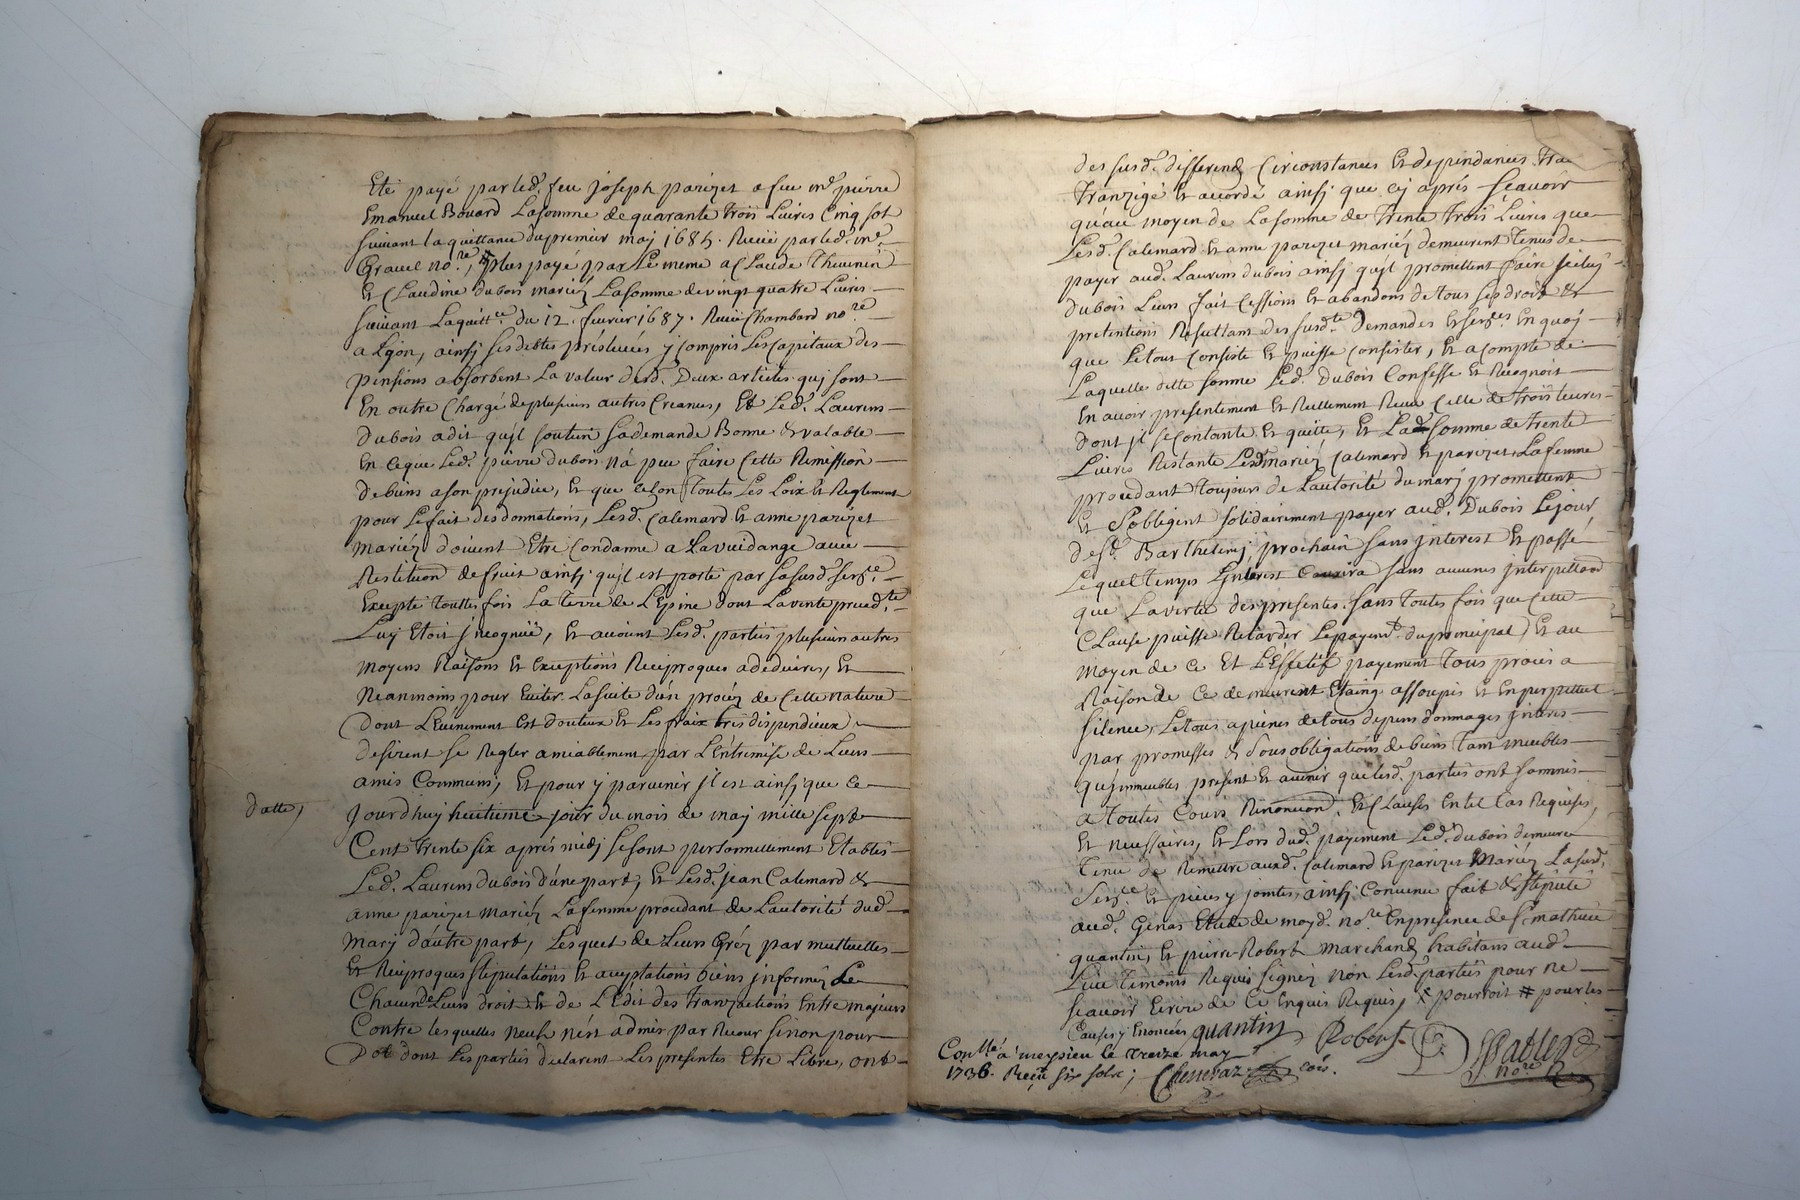 Eté payé par led. feu joseph parizet a feu me. pierre
Emanuel Bouard Lasomme de quarante trois Livres Cinq sol
suivant la quittance du premier maj 1685. Receüe par led. me.
Gravel nore., # plus payé par Le meme a Claude Thevenin
Et Claudine dubois mariéz Lasomme de vingt quatre Livres
suivant Laquittce. du 12. fevrier 1687. Receüe Chambard nore.
a Lÿon, ainsj ses debtes preslevées y Compris Les Capitaux des
pensions absorbent La valeur desd. Deux articles quj sont
En outre Chargé de plusieurs autres Creances, Et Led. Laurens
Dubois a dit qu'jl soutien sa demande Bonne & valable
En ce que Led. pierre dubois n'a peu faire Cette Remession
De biens a son prejudice, Et que selon Toutes Les Loix Et Reglement
pour Le fait des donnations, Lesd. Calemard Et anne parizet
Mariéz doivent Etre Condamné a La vuidange avec
Restitution de fruit ainsj qu'jl est porté par sa susd.
Excepté touttes fois La Terre de L'Epine dont La vente preced.te
Luj Etoit jncognüe, Et avoient Lesd. parties plusieurs autres
moyens Raisons Et Exceptions Reciproques a deduires, Et
Neanmoins pour Eviter La suite d'un procéz de Cette nature
Dont L'Evenement Est douteux Et Les fraix tres dispendieux
desirent se Regler amiablement par L'Entremise de Leurs
amis Communs, Et pour y parvenir jl est ainsj que Ce
Datte, jourd'huy huitieme jour du mois de maj mille sept
Cent trente six aprés midj se sont personnellement Etablis
Led. Laurens dubois d'une part, Et Lesd. jean Calemard &
anne parizet mariéz La femme procedant de L'autorité dud.
Marj d'autre part, Lesquel de Leurs Gréz par mutuelles
Et Reciproques stipulations Et acceptations biens jnforméz de
Chacun de Leurs droit Et de L'Edit des Tranzactions Entre majeurs
Contre lesquelles n'est admis par Recour sinon pour
Dol dont Les parties declarent Les presentes Etre Libre, ont
des susd. differend Circonstances Et dependances
Tranzigé Et accordé ainsj que cj aprés sçavoir
qu'au moyen de La somme de Trente Trois Livres que
Lesd. Calemard Et anne parizet mariéz demeurent Tenus de
payer aud. Laurens dubois ainsj qu'jl promettent faire
dubois Leurs fait Cessions Et abandons de tous ses droit &
pretentions Resultam des susd.te Demandes Et En quoj
que Le tout Consiste Et puisse Consister, Et a compte de
Laquelle ditte somme Led. Dubois Confesse Et Recognoit
En avoir presentement Et Reellement Receu Celle de trois Livres
Dont jl se Contante Et quitte, Et Lad. somme de Trente
Livres Restante Lesd. mariéz Calemard Et parizet La femme
procedant toujours de Lautorité du marj promettent
Et S'obligent solidairement payer aud. Dubois Le jour
de st. Barthelemj prochain sans jnterest Et passé
Lequel Temps L'jnterest Courira sans aucunes jnterpellaōn
que La vertu des presentes. sans toutes fois que Cette
Clause puisse Retarder Le payemt. du principal, Et au
moyen de Ce Et L'Effetif payement Tous procés a
Raison de Ce demeurent Etaing assoupis Et En perpettuel
silence, Le tous a peines de tous depens dommages jnterés
par promesses & sous obligations de biens tam meubles
qu'jmmeubles present Et avenir que lesd. parties ont sommis
a Toutes Cours Renonciaōn, Et Clauses En tel Cas Requises,
Et necessaires, Et Lors dud. payement Led. dubois demeure
Tenu de Remettre auxd. Calemard Et parizet Mariéz La susd.
Et pieces y jointes, ainsj Convenu fait & stipulé
aud. Genas Etude de moyd. nore. En presence de sr. mathieu
quantin, Et pierre Robert marchand habitans aud.
Lieu Temoins Requis signéz non Lesd. parties pour ne
scavoir Ecrire de Ce Enquis Requis, x pourroit # pour les
Causes y Enoncées quantin Robert
nore.
Conllé. a meyzieu le treize may
1736. Reçu six sols;